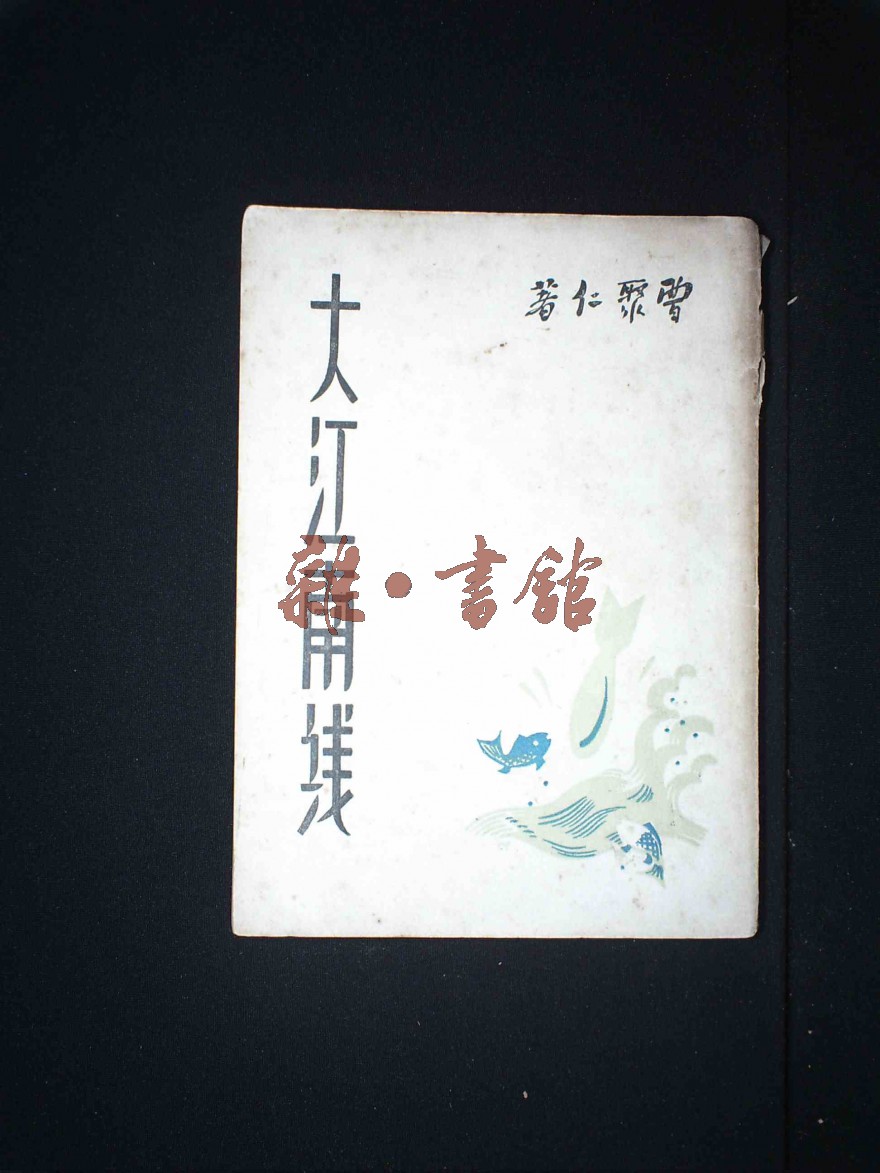 曹聚仁著
大江南线
雜·書館